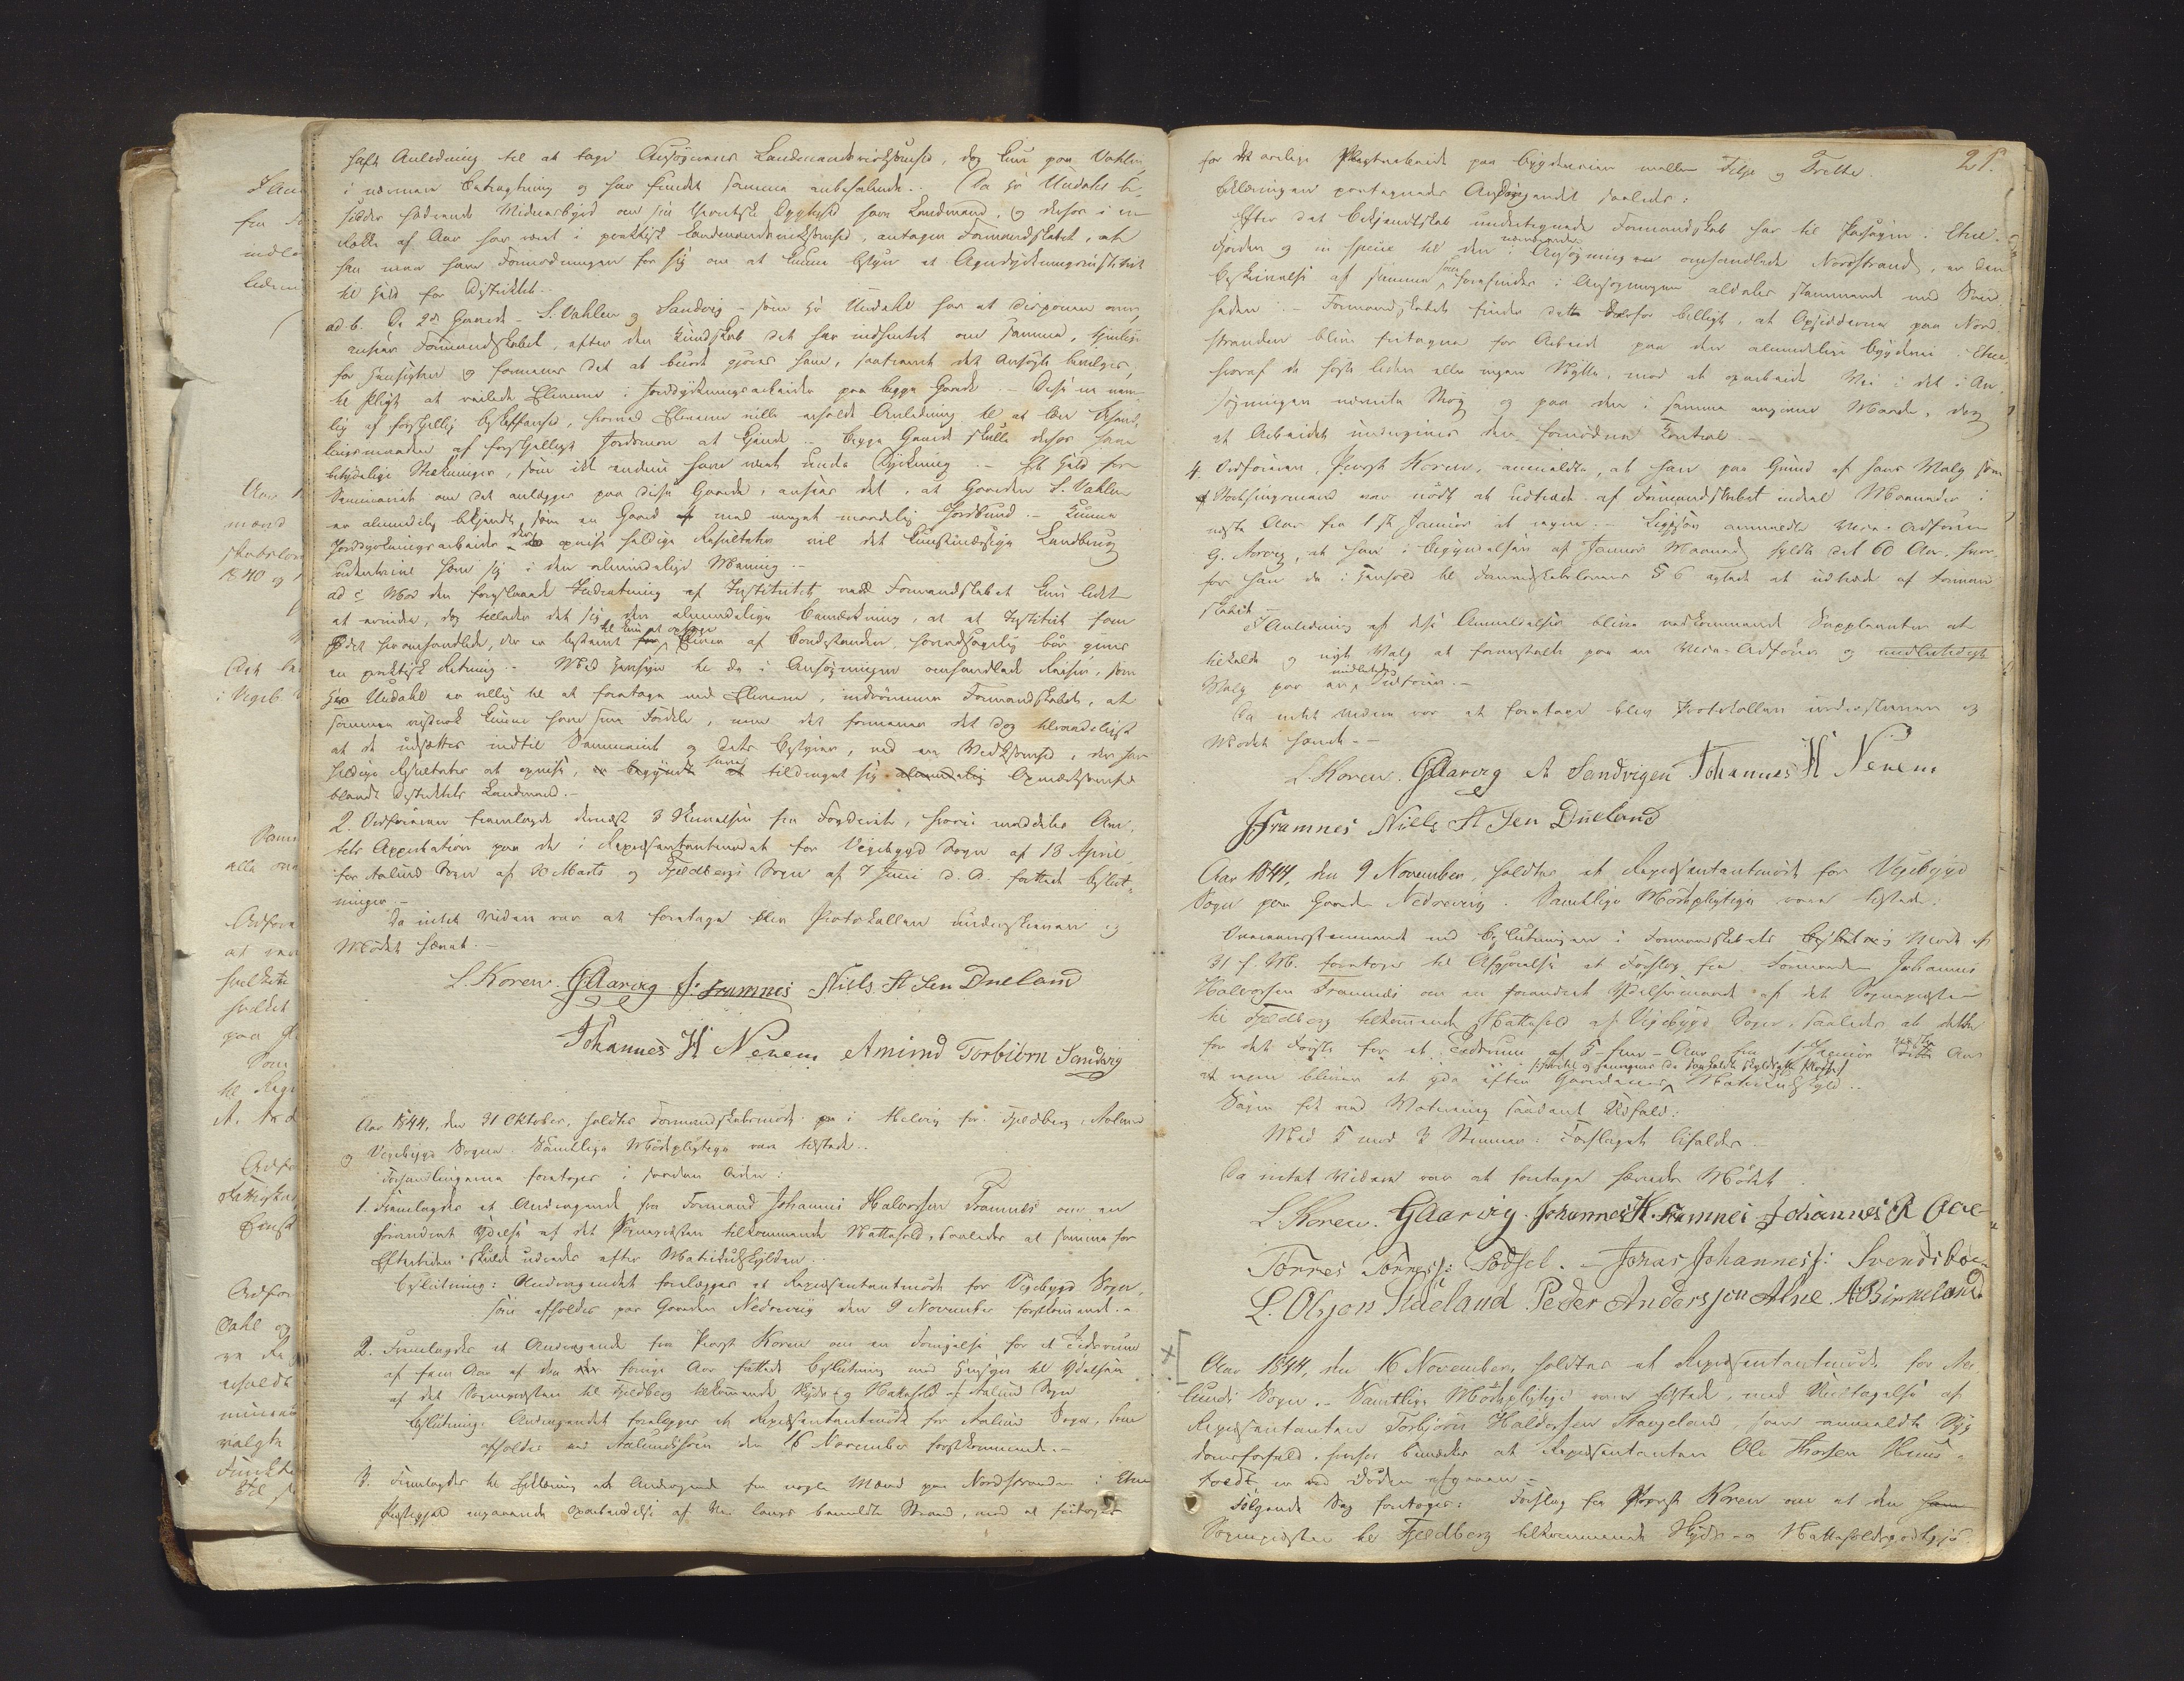 haft Anledning til at tage Ansøgerens Landmandsvirksomhed, dog kun paa Vahlen
i nærmere Betragtning og har fundet samme anbefalende. Da Hr Undahl be-
sidder hædrende Vidnesbyrd om sin theoretiske Dygtighed som Landmand, og derhos i en
Række af Aar har været i praktisk Landmandsvirksomhed, antager Formandskabet, at
han maa have Formodningen for sig om at kunne bestyre et Agerdyrkningsinstitut
til Held for Distriktet.
ad b. De 2de Gaarde - S. Vahlen og Sandvig - som Hr Undahl har at disponere over,
ansees Formandskabet, efter den Kundskab det har indhentet om samme, tjenlige
for Hensigten og formener det at burde gjøres ham, saafremt det Ansøgte bevilges,
til Pligt at veilede Eleverne i Jorddyrkningsarbeider paa begge Gaarde. - Disse er nem-
lig af forskjellig Beskaffenhed, hvorved Eleverne ville erholde Anledning til at lære Behand-
lingsmaaden af forskjelligt Jordsmon at kjende. - Begge Gaarde skulle derhos have
betydelige Strækninger, som ikke endnu have været under Dyrkning. - Et Held for
Seminariet om det anlægges paa disse Gaarde, ansees det, at Gaarden S. Vahlen
er almindelig bekjendt som en Gaard med meget maadelig Jordbund. - Kunne
Jorddyrkningsarbeider der opvise heldige Resultater vil det kunstmæssige Landbrug
udentvivl hæve sig i den almindelige Mening. -
ad c Mod den foreslaaede Indretning af Institutet, veed Formandskabet kun lidet
at erindre, dog tillader det sig den almindelige Bemærkning, at et Institut som
det her omhandlede, der er bestemt til kun at optage Elever af Bondestanden hovedsagelig bør gives
en praktisk Retning. - Med Hensyn til de i Ansøgningen omhandlede Reiser, som
Hr Undahl er villig til at foretage med Eleverne, indrømmer Formandskabet, at
samme vistnok kunne have sine Fordele, men det formener det dog tilraadeligst
at de udsættes indtil Seminariet og dets Bestyrer, ved en Virksomhed, der har
heldige Resultater at opvise, have tildraget sig Opmærksomhed
blandt Distriktets Landmænd. -
2. Ordføreren fremlagde dernæst 3 Skrivelser fra Fogderiet, hvori meddeles Am-
tets Approbation paa de i Repræsentantmødet for Vigebygd Sogn af 13 April,
for Aalund Sogn af 30 Marts og Fjeldbergs Sogn af 7 Juni d. A. fattede Beslut-
ninger. -
Da intet videre var at foretage blev Protokollen underskreven og
Mødet hævet. -
L. Koren. GAarvig J. Framnes Niells H Sen Dueland
Johannes H Nerem Amund Torbiörn Sandvig
Aar 1844, den 31 Oktober, holdtes Formandskabsmøde i Ølsvig for Fjeldberg, Aalund
og Vigebygd Sogne. Samtlige Mødepligtige vare tilstede.
Forhandlingerne foretoges i saadan Orden:
1. Fremlagdes et Andragende fra Formand Johannes Halvorsen Framnæs om en
forandret Ydelse af det Sognepræsten tilkommende Natthold, saaledes at samme for
Eftertiden skulde udredes efter Matrikulskylden.
Beslutning: Andragendet forelægges et Repræsentantmøde for Vigebygd Sogn,
som afholdes paa Gaarden Nedrevig den 9 November førstkommende. -
2. Fremlagdes et Andragende fra Provst Koren om en Fornyelse for et Tidsrum
af fem Aar af den forrige Aar fattede Beslutning med Hensyn til Ydelsen
af det Sognepræsten til Fjeldberg tilkommende Skyds- og Natthold af Aalund Sogn
Beslutning: Andragendet forelægges et Repræsentantmøde for Aalund Sogn, som
afholdes ved Aalundssøen den 16 November førstkommende. -
3. Fremlagdes til Erklæring et Andragende fra nogle Mænd paa Nordstranden i Etne
Præstegjeld angaaende Oparbeidelse af Vei langs bemeldte Strand, mod at fritages
21.
for det aarlige Pligtarbeide paa Bygdeveien mellem Silje og Trette.
Erklæringen paategnedes Andragendet saaledes:
Efter det Bekjendtskab undertegnede Formandskab har til Passagen i Etne-
fjorden og in specie til den i nærværende Ansøgning omhandlede Nordstrand, er den
Beskrivelse af samme som forefindes i Ansøgningen aldeles stemmende med Sand-
heden. - Formandskabet finder det derfor billigt, at Opsidderne paa Nord-
stranden blive fritagne for Arbeide paa den almindelige Bygdevei i Etne,
hvoraf de høste liden eller ingen Nytte, mod at oparbeide Vei i det i An-
søgningen nævnte Strøg og paa den i samme angivne Maade, dog
at Arbeidet undergives den fornødne Kontrol. -
4. Ordføreren, Provst Koren, anmeldte, at han paa Grund af hans Valg som
Storthingsmand var nødt at udtræde af Formandskabet endeel Maaneder i
næste Aar fra 1ste Januar at regne. - Ligesaa anmeldte Vice-Ordfører
G. Aarvig, at han i Begyndelsen af Januar Maaned fyldte det 60 Aar, hvor-
for han da i Henhold til Formandskabslovens § 6 agtede at udtræde af Formand-
skabet.
I Anledning af disse Anmeldelser blive vedkommende Supleanter at
tilkalde og nyt Valg at foranstalte paa en Vice-Ordfører og midlertidigt
Valg paa en midlertidig Ordfører. -
Da intet videre var at foretage blev Protokollen underskreven og
Mødet hævet. -
L Koren. GAarvig A Sandvigen Johannes H Nerem
JFramnes Niells H Sen Dueland
Aar 1844, den 9 November, holdtes et Repræsentantmøde for Vigebygd
Sogn paa Gaarden Nedrevig. Samtlige Mødepligtige vare tilstede.
Overensstemmende med Beslutningen i Formandskabets Møde af
31 f. M. foretoges til Afgjørelse et Forslag fra Formanden Johannes
Halvorsen Framnæs om en forandret Ydelsesmaade af det Sognepræsten
til Fjeldberg tilkommende Natthold af Vigebygd Sogn, saaledes at dette
for det Første for et Tidsrum af 5 - fem - Aar fra 1 Januar næste Aar
at regne bliver at yde efter Gaardenes Matrikulskyld.
Sagen fik ved Votering saadant Udfald:
Med 5 mod 3 Stemmer: Forslaget bifaldes.
Da intet videre var at foretage hævedes Mødet.
L. Koren. GAarvig. Johannes H. Framnes Johannes R Aae
Torres Torresj: Todsel. - Johas Johannesj: Svendsbøe
L. Olsjen Stueland Peder Andersjen Alne. ABirkeland
Aar 1844, den 16 November, holdtes et Repræsentantmøde for Aa-
lunds Sogn. - Samtlige Mødepligtige vare tilstede, med Undtagelse af
Repræsentanten Torbjørn Haldorsen Stangeland, som anmeldte Syg-
domsforfald, hvorhos bemærkes at Repræsentanten Ole Thorsen Huus-
toedt er ved Døden afgaaen. -
Følgende Sag foretoges: Forslag fra Provst Koren om at den
Sognepræsten til Fjeldberg tilkommende Skyds- og Nattholdsgodtgjø-